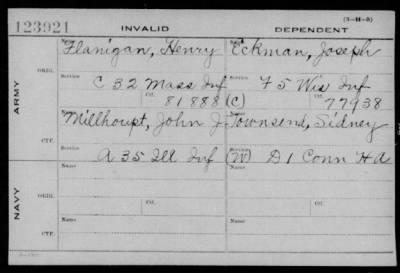 (3-11-3)
123921 INVALID DEPENDENT
ARMY
NAVY
ORIG.
Name Name
Flanigan, Henry Eckman, Joseph
Service Service
C 32 Mass Inf F 5 Wis Inf
Ct. 81888 (C) Ct. 77938
CTF.
Millhoupt, John J. Townsend, Sidney
Service Service
A 35 Ill Inf (W) D 1 Conn H A
ORIG.
Name Name
Ct. Ct.
CTF.
Name Name